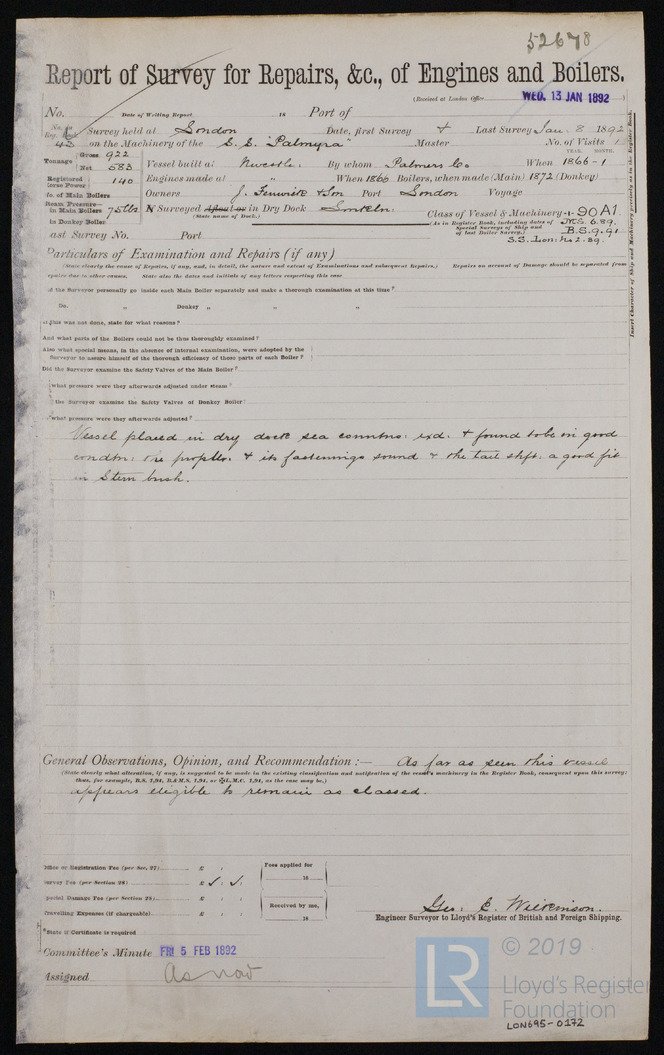 52678
Report of Survey for Repairs, &c., of Engines and Boilers.
(Received at London Office WED. 13 JAN 1892 )
No. Date of Writing Report 18 Port of
No. in Reg. Book Survey held at London Date, first Survey + Last Survey Jan. 8 1892
43 on the Machinery of the S.S. "Palmyra" Master No. of Visits 1
Tonnage Gross 922 Net 583 Vessel built at Nwcstle. By whom Palmers Co. When 1866-1 YEAR. MONTH.
Registered Horse Power 140 Engines made at " When 1866 Boilers, when made (Main) 1872 (Donkey)
No. of Main Boilers Owners J. Fenwick & Son Port London Voyage
Steam Pressure— in Main Boilers 75 lbs If Surveyed Afloat or in Dry Dock
in Donkey Boiler (State name of Dock.) Class of Vessel & Machinery 90 A1
(As in Register Book, including dates of Special Surveys of Ship and of last Boiler Survey.) 6.89.
B.S. 9.91
S.S. Lon: No 2-89.
Last Survey No. Port
Insert Character of Ship and Machinery precisely as in the Register Book.
Particulars of Examination and Repairs (if any)
(State clearly the cause of Repairs, if any, and, in detail, the nature and extent of Examinations and subsequent Repairs.) Repairs on account of Damage should be separated from
repairs due to other causes. State also the dates and initials of any letters respecting this case
Did the Surveyor personally go inside each Main Boiler separately and make a thorough examination at this time?
Do. " Donkey " "
If this was not done, state for what reasons?
And what parts of the Boilers could not be thus thoroughly examined?
Also what special means, in the absence of internal examination, were adopted by the
Surveyor to assure himself of the thorough efficiency of those parts of each Boiler?
Did the Surveyor examine the Safety Valves of the Main Boiler?
what pressure were they afterwards adjusted under steam?
the Surveyor examine the Safety Valves of Donkey Boiler
what pressure were they afterwards adjusted?
Vessel placed in dry dock sea conntns: exd. + found to be in good
condtn: the propller. + its fastenings sound + the tail shft. a good fit
in Stern bush.
General Observations, Opinion, and Recommendation :— As far as seen this vessel
(State clearly what alteration, if any, is suggested to be made in the existing classification and notification of the vessel's machinery in the Register Book, consequent upon this survey;
thus, for example, B.S. 7,94, B.&M.S. 7,94, or ✠L.M.C. 7,94, as the case may be.)
appears eligible to remain as classed.
Office or Registration Fee (per Sec. 27) £ : : Fees applied for
Survey Fee (per Section 28) £ : : 18
Special Damage Fee (per Section 28) £ : : Received by me,
Travelling Expenses (if chargeable) £ : : 18
Geo. C. Wilkinson.
Engineer Surveyor to Lloyd's Register of British and Foreign Shipping.
*State if Certificate is required
Committee's Minute FRI 5 FEB 1892
Assigned As now
LR
© 2019
Lloyd's Register
Foundation
LON695-0172